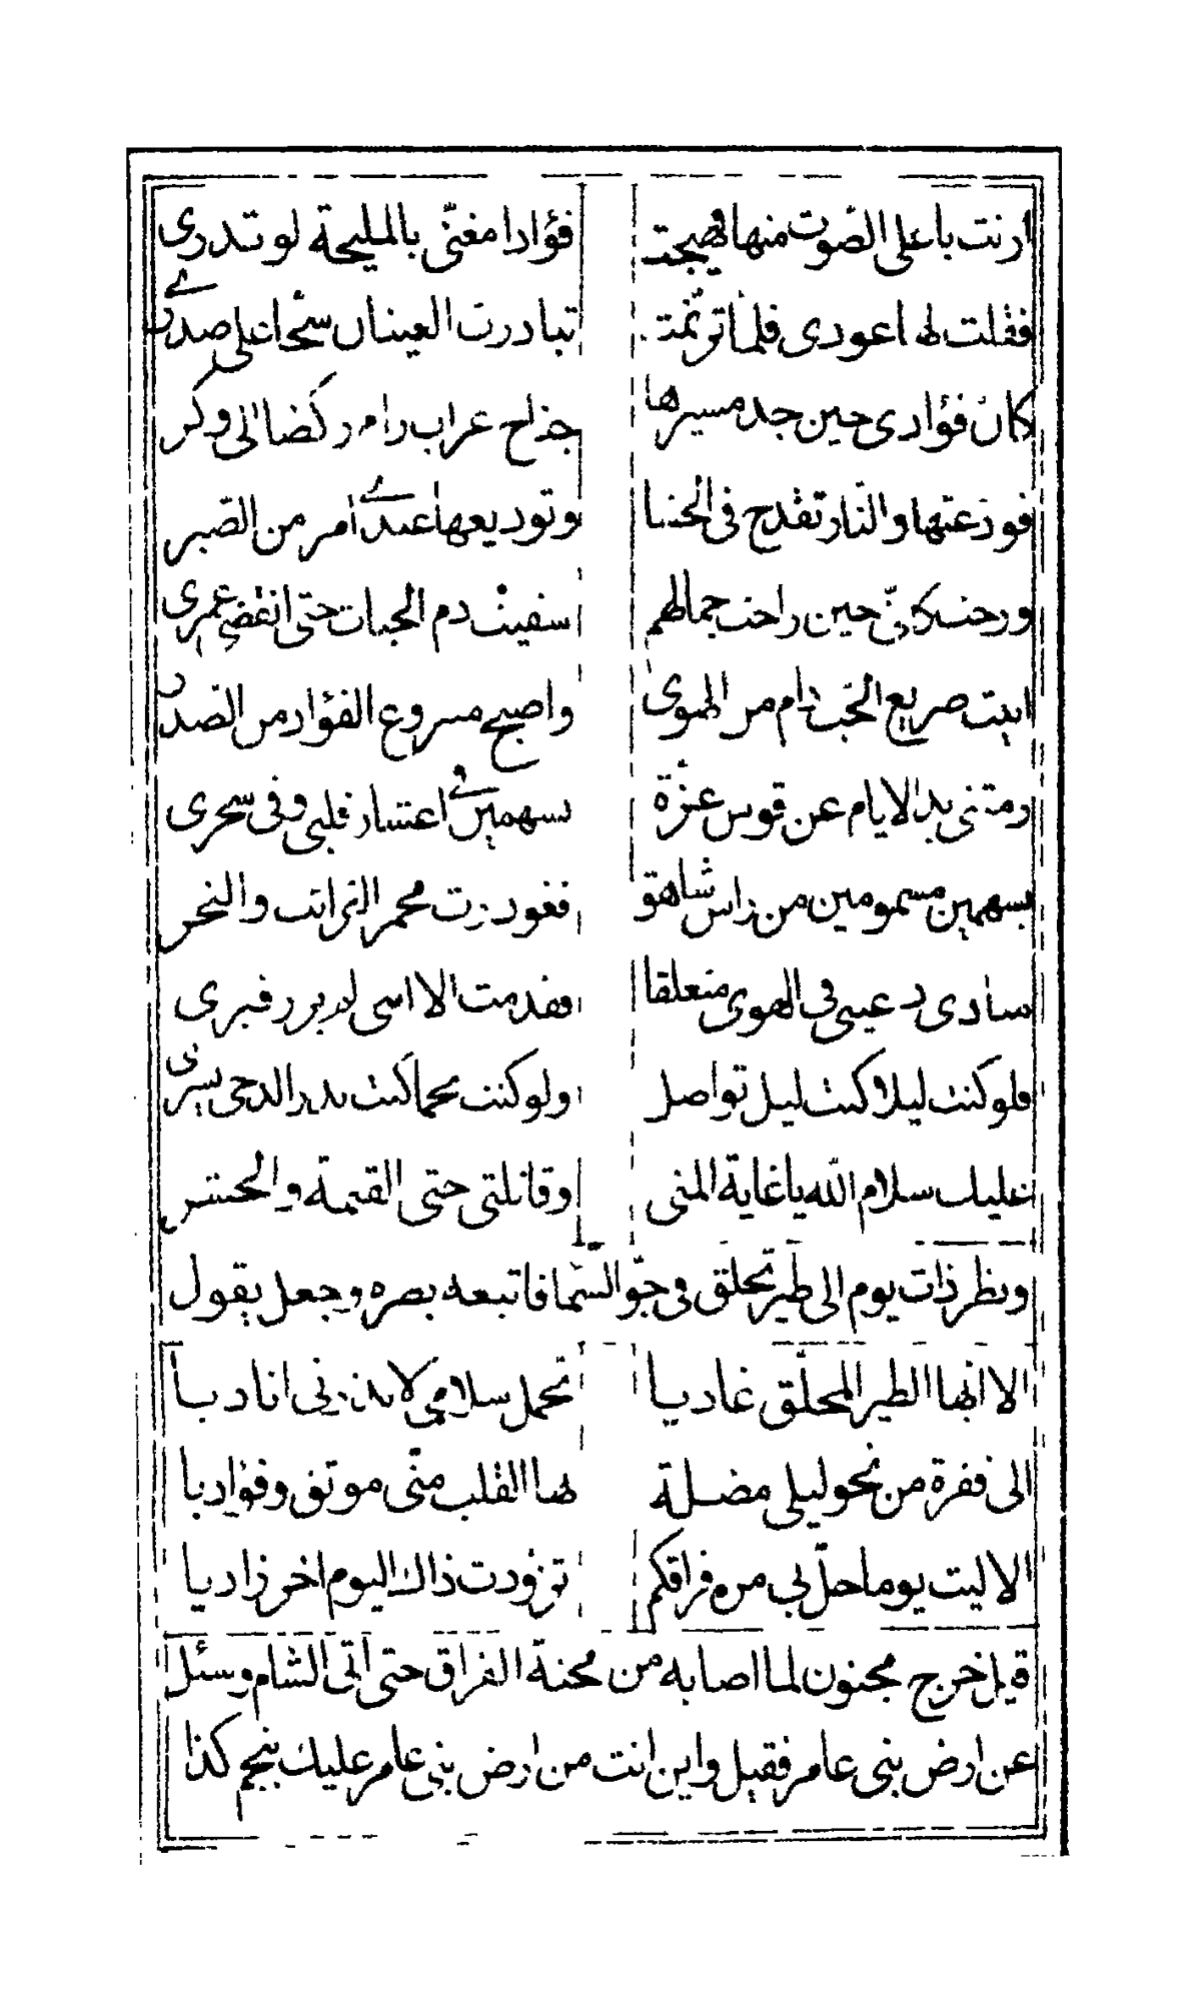 ارنت باعلى الصّوت منها فهيجت فؤادا مغنّى بالمليحة لو تدرى
فقلت لها اعودى فلما ترنمت تبادرت العينان سحّا على صدرى
كان فؤادى حين جد مسيرها جناح غراب رام ركضا الى وكر
فودعتها والنار تقدح فى الحشا وتوديعها عندى امر من الصّبر
ورحت كانّى حين راحت جمالهم سقيت دم الحيات حتى انقضى عمرى
ابيت صريع الحب دام من الهوى واصبح مسروع الفؤاد من الصدر
رمتنى يد الايام عن قوس عزّة بسهمين فى اعشار قلبى وفى سحرى
بسهمين مسمومين من راس شاهق فغودرت محمر الترائب والنحر
منادى دعينى فى الهوى متعلقا فقد مت الا اننى لم يزر قبرى
فلو كنت ليلا كنت ليل تواصل ولو كنت نجما كنت بدر الدجى يسرى
عليك سلام الله يا غاية المنى وقاتلتى حتى القيمة والحشر
ونظر ذات يوم الى طير تحلق فى جوّ السّما فاتبعه بصره وجعل يقول
الا ايها الطير المحلّق غاديا تحمل سلامى لا تذرنى اناديا
الى قفرة من نحو ليلى مضلة لها القلب منّى موثق وفؤاديا
الا ليت يوما حلّ بى من فراقكم تزودت ذاك اليوم اخر زاديا
قيل خرج مجنون لما اصابه من محنة الفراق حتى اتى الشام وسئل
عن ارض بنى عامر فقيل واين انت من ارض بنى عامر عليك بنجم كذا